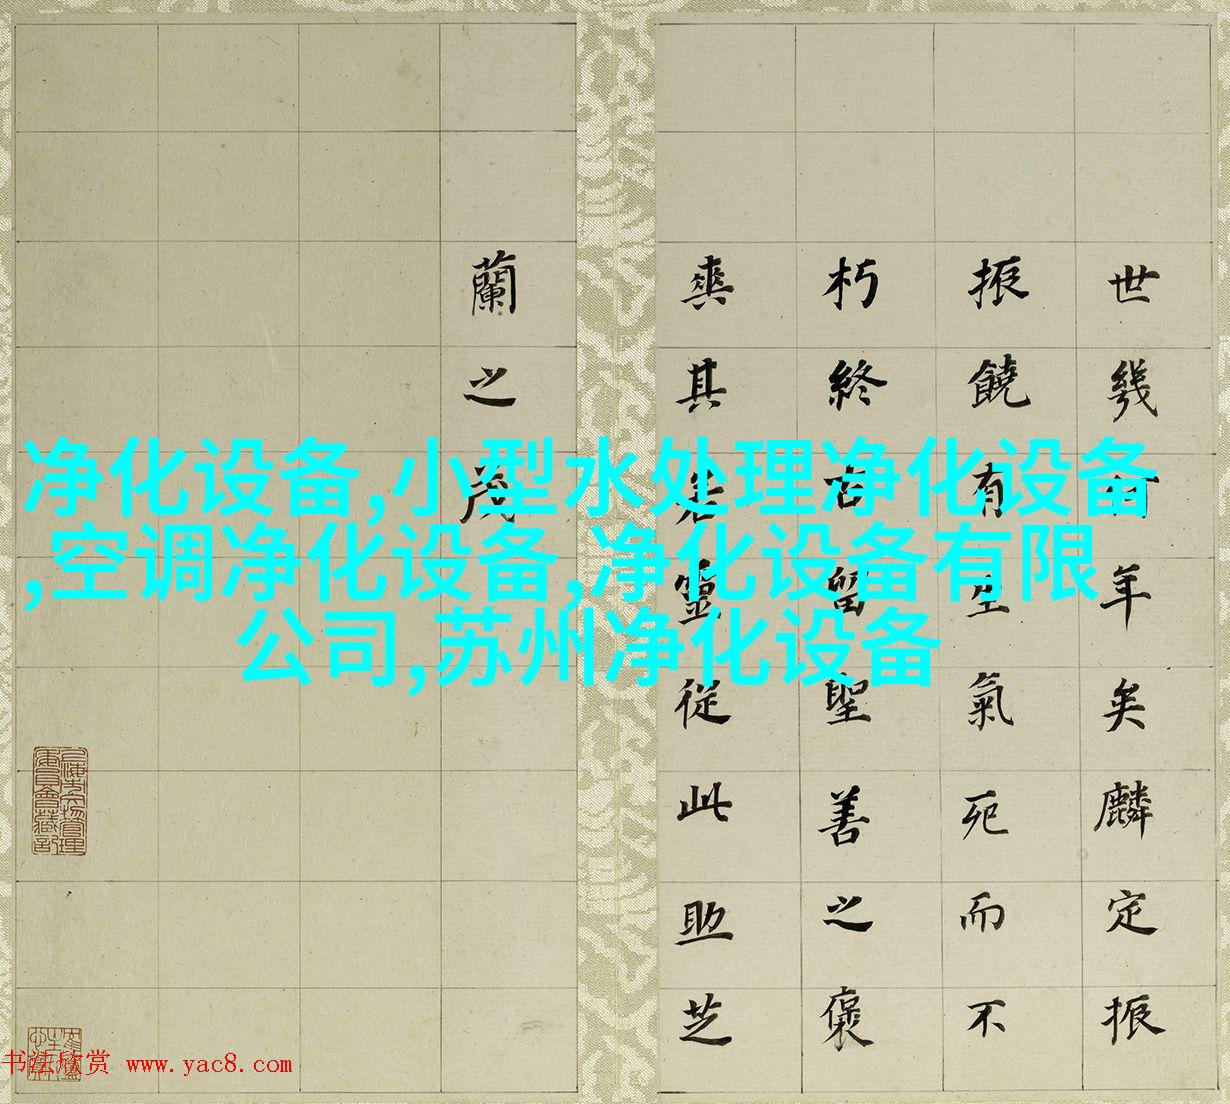 世幾年矣麟定振
振饒有生氣死而不
朽終古留聖善之褒
爽其若靈從此助芝
蘭之茂
净化设备,小型水处理净化设备
,空调净化设备,净化设备有限
公司,苏州净化设备
书法欣赏 www.yac8.com